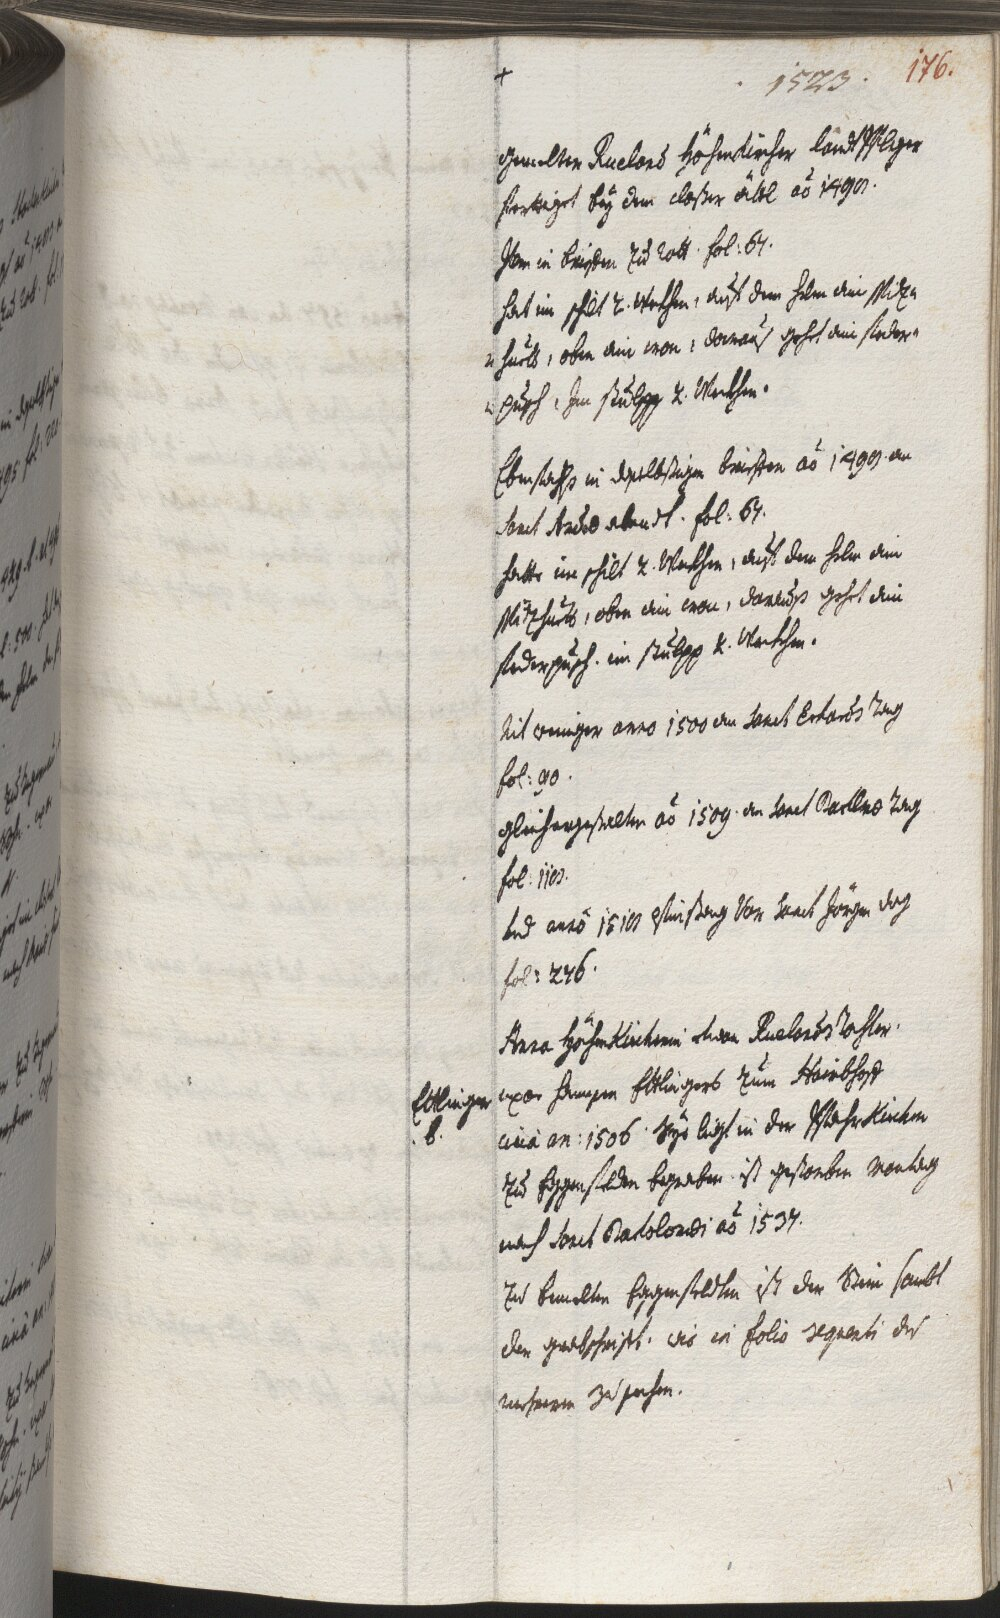 + 1523. 176.
gemelter Rueland Höhenkircher landt Pfleger
ferttiget beÿ dem closter Ättl ao 1490.
Item in brieffen zu Rott. fol: 64.
hat im schilt 2. Weckhen, auf dem helm ain Spitz¬
huett, oben ain cron, daraus gehet ain feder¬
pusch, Im stulpp 2. Weckhen.
Ebenfahls in briefen ao 1490. an
Sanct abendt. fol: 64.
hatte im schilt 2. Weckhen, auf dem helm ain
Spitzhuett, oben ain cron, daraus gehet ain
federpusch. im stulpp 2. Weckhen.
Nit weniger anno 1500 an Sanct Erhards Tag
fol: 90.
gleichergestalten ao 1509. an Sanct Tag
fol: 110.
und anno 1510 Vor Sanct Jörgen dag
fol: 246.
Anna Höhenkircherin Ruelands Tochter.
uxor hannsen Ettlingers zum Hainbhofs
Ettlinger
b.
circa an: 1506. ligt in der Pfahrkirchen
zu Eggenfelden begraben. ist gestorben montag
nach Sanct Bartolomei ao 1534.
zu bemelten Eggenfeldten ist der Stein sambt
der grabschrift. wie in folio sequenti des
mehrern zu sehen.